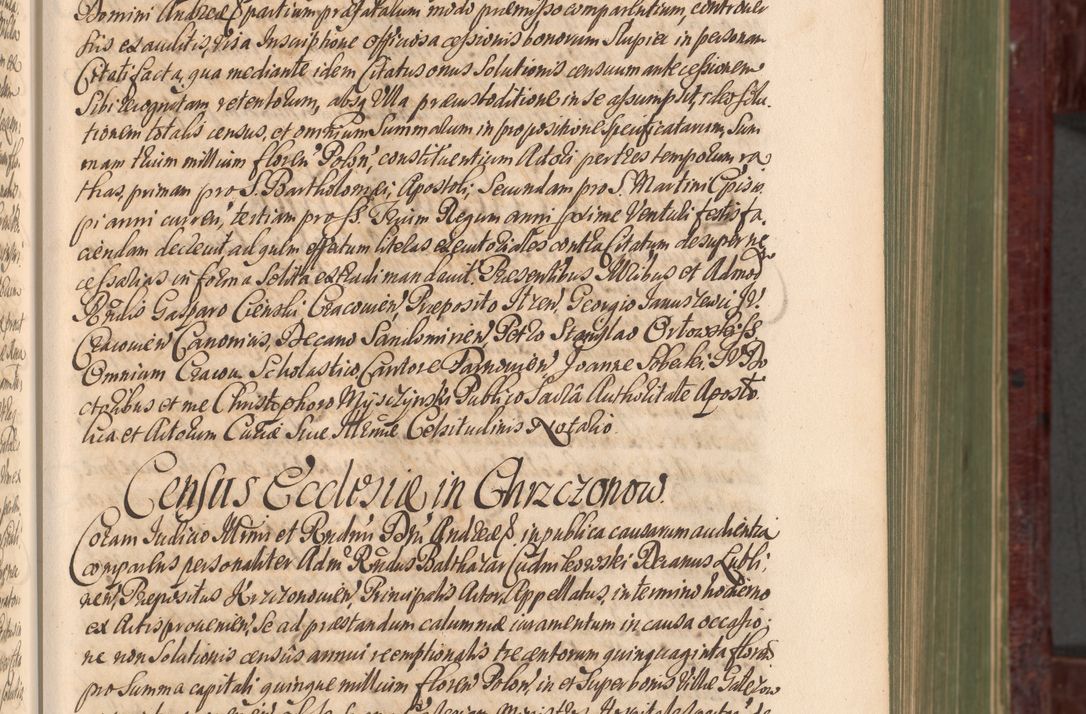 Domini Andreæ E partium præfatarum modo præmisso comparentium, controver
siis exauditis, visa Inscriptione officiosa cessionis bonorum Slupiec in personam
Citati facta, qua mediante idem Citatus onus Solutionis censuum ante cessionem
Sibi recognitam retentorum, absq́ Ulla præcustoditione in se assumpsit, ideo solu
tionem totalis census, et omnium Summarum in propositione specificatarum, Sum
mam trium millium floren' Polon', constituentium Actori per tres temporum ra
thas, primam pro S. Bartholomei Apostoli, Secundam pro S. Martini Episco
pi anni curren', tertiam pro SS. Trium Regum anni proxime Venturi festis fa
ciendam decrevit, ad quem effectum literas executoriales contra Citatum desuper ne
cessarias in forma Solita extradi mandavit. Præsentibus Illribus et Admod
Rndis Gasparo Cienski Cracovien', Præposito Georgio Januszewicz
Cracovien' Canonius, Decano Sandomirien', Petro Stanislao Ortowski SS.
Omnium Cracov. Scholastico, Cantore Tarnovien', Joanne Sobecki, Do
ctoribus et me Christophoro Myszczynski Publico Sacra Authoritate Aposto
lica et Actorum Curiæ Suæ Illrimæ Celsitudinis Notario.
Census Ecclesiæ in Chrzczonow.
Coram Judicio Illrimi et Rndmi Dni Andreæ E. in publica causarum audientia
comparens personaliter Adm' Rndus Balthazar Ludmikowski Decanus Lubli;
nen', Præpositus Krzczonowien', Principalis Actor, Appellatus, in termino hodierno
ex Actis provenien', Se ad præstandum calumniæ iuramentum in causa occasio;
ne non Solutionis census annui reemptionalis trecentorum quinquaginta floren'
pro Summa capitali quinque millium floren' Polon', in et Super bonis Villæ